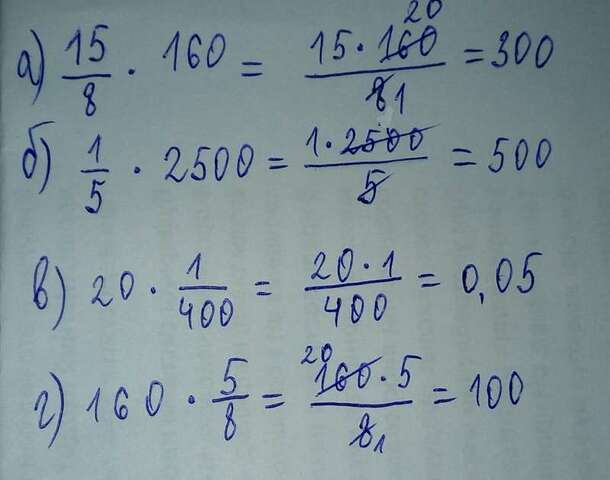 а) 15/8 · 160 = 15 · 160 20/8 1 = 300
б) 1/5 · 2500 = 1 · 2500/5 = 500
в) 20 · 1/400 = 20 · 1/400 = 0,05
г) 160 · 5/8 = 20 160 · 5/8 1 = 100